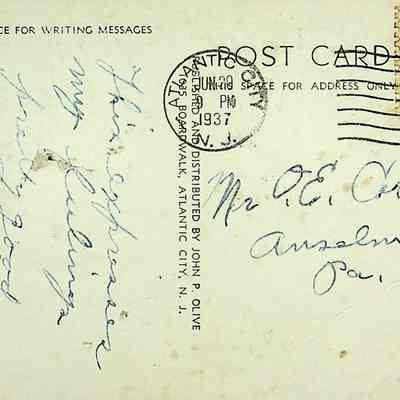 CE FOR WRITING MESSAGES
This expresses
my feelings
pretty good
PUBLISHED AND DISTRIBUTED BY JOHN P. OLIVE
BOARDWALK, ATLANTIC CITY, N. J.
POST CARD
THIS SPACE FOR ADDRESS ONLY
ATLANTIC CITY
JUN 29
9 PM
1937
N. J.
Mr O. E. Car
Anselm
Pa.